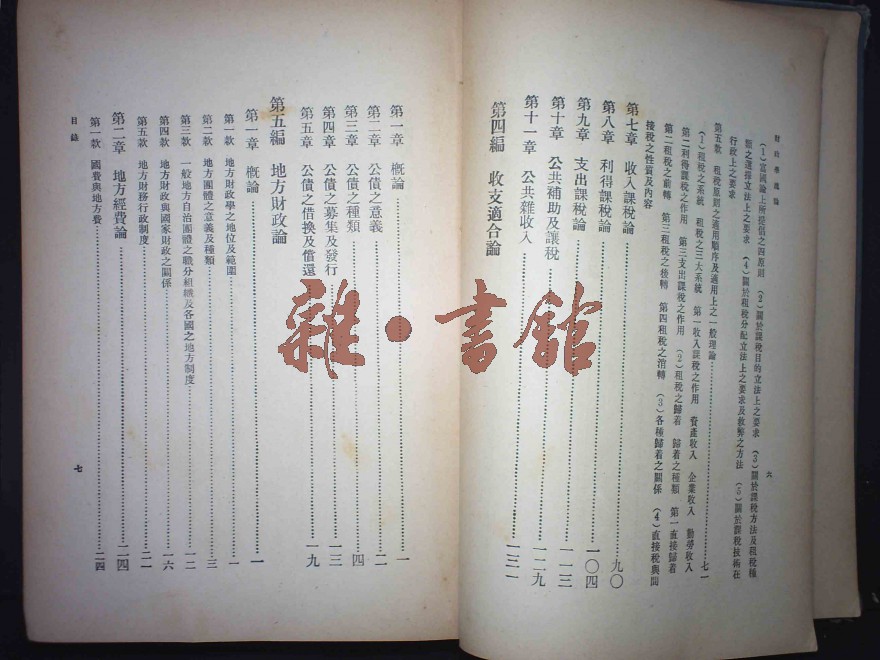 財政學總論
六
(1)富國論上所提倡之四原則 (2)關於課稅目的立法上之要求 (3)關於課稅方法及租稅種
類之選擇立法上之要求 (4)關於租稅分配立法上之要求及救弊之方法 (5)關於課稅技術在
行政上之要求
第五款 租稅原則之適用順序及適用上之一般理論 七一
(1)租稅之系統 租稅之三大系統 第一收入課稅之作用 資產收入 企業收入 勤勞收入
第二利得課稅之作用 第三支出課稅之作用 (2)租稅之歸着 歸着之種類 第一直接歸着
第二租稅之前轉 第三租稅之後轉 第四租稅之消轉 (3)各種歸着之關係 (4)直接稅與間
接稅之性質及內容
第七章 收入課稅論 九〇
第八章 利得課稅論 一〇四
第九章 支出課稅論 一一三
第十章 公共補助及讓稅 一二九
第十一章 公共雜收入 一三一
第四編 收支適合論
第一章 概論 一
第二章 公債之意義 二
第三章 公債之種類 四
第四章 公債之募集及發行 一三
第五章 公債之借換及償還 一九
第五編 地方財政論
第一章 概論 一
第一款 地方財政學之地位及範圍 一
第二款 地方團體之意義及種類 三
第三款 一般地方自治團體之職分組織及各國之地方制度 一二
第四款 地方財政與國家財政之關係 一六
第五款 地方財務行政制度 二一
第二章 地方經費論 二四
第一款 國費與地方費 二四
目錄
七
雜·書館